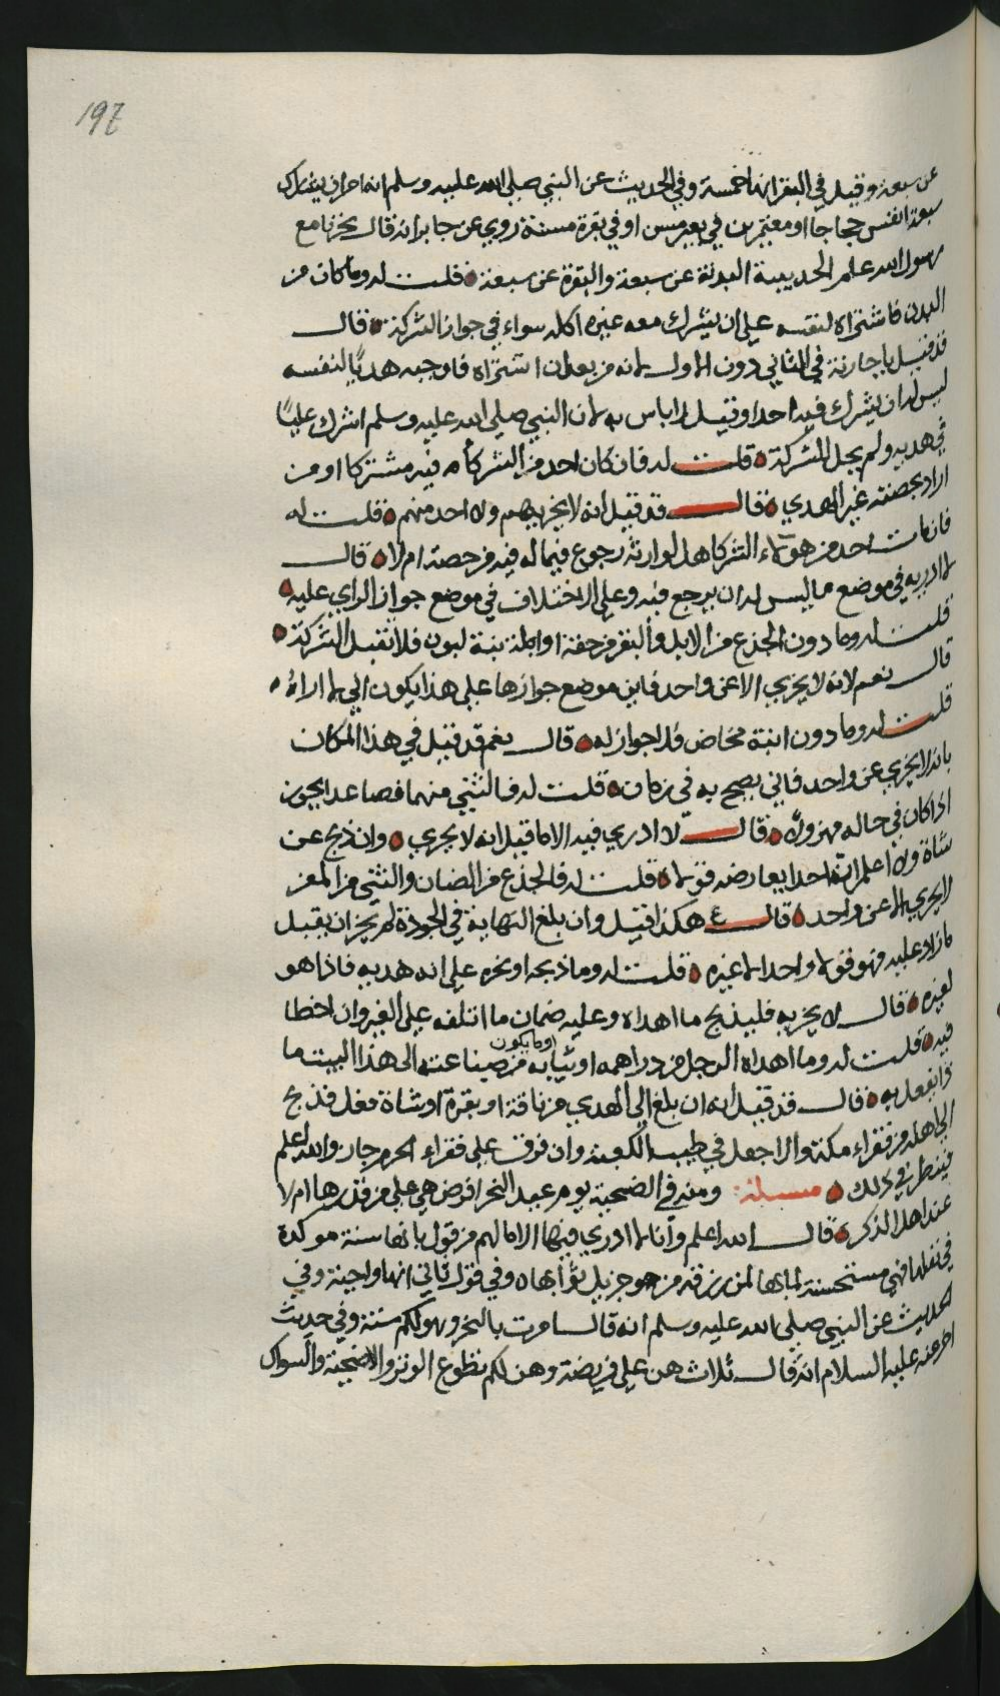 197
عن سبعة وقيل في البقر انها خمسة وفي الحديث عن النبي صلى الله عليه وسلم انه امر ان يشترك
سبعة انفس حجاجا او معتمرين في بعير مسن او في بقرة مسنة روي عن جابر انه قال نحرنا مع
رسول الله عام الحديبية البدنة عن سبعة والبقرة عن سبعة قلت له وما كان من
البدن فاشتراه لنفسه على ان يشرك معه غيره اكله سواء في جواز الشركة قال
قد قيل باجازته في الثاني دون الاول لانه من بعد ان اشتراه فاوجبه هديا لنفسه
ليس له ان يشرك فيه احدا وقيل لا باس به لان النبي صلى الله عليه وسلم اشرك عليا
في هديه ولم يجل الشركة قلت له فان كان احد من الشركاء فيه مشتركا او من
اراد بحصته غير الهدي قال قد قيل انه لا يجزيهم ولا احد منهم قلت له
فان مات احد من هؤلاء الشركا هل لوارثه رجوع فيما له فيه من حصة ام لا قال
لا ادريه في موضع ما ليس له ان يرجع فيه وعلى الاختلاف في موضع جواز الراي عليه
قلت له وما دون الجذع من الابل والبقر من حقة او ابنة لبون فلا تقبل الشركة
قال نعم لانه لا يجزي الا عن واحد فاين موضع جوازها على هذا يكون اني لا اراه
قلت له وما دون ابنة مخاض فلا جواز له قال نعم قد قيل في هذا المكان
بانه لا يجزي عن واحد فاني يصح به في زمان قلت له فالثني منهما فصاعدا يجوز
اذا كان في حاله مهزولا قال لا ادري فيه الا ما قيل انه لا يجزي وان ذبح عن
شاة ولا اعلم ان احدا يعارضه قولا قلت له فالجذع من الضان والثني من المعز
لا يجزي الا عن واحد قال ع هكذا قيل وان بلغ النهاية في الجودة لم يجز ان يقبل
ما زاد عليه فهو فوق لا واحدا لا غيره قلت له وما ذبحه او نحره على انه هديه فاذا هو
لغيره قال لا يجزيه فليذبح ما اهداه وعليه ضمان ما اتلفه على الغير وان اخطا
فيه قلت له وما اهداه الرجل من دراهمه او ثيابه او ما يكون من صناعته الى هذا البيت ما
ذا يفعل به قال قد قيل انه ان بلغ الى الهدي من ناقة او بقرة او شاة فعل فذبح
الى اهله من فقراء مكة والا جعل في طيب الكعبة وان فرق على فقراء الحرم جاز والله اعلم
فينظر في ذلك مسئلة ومنه في الضحية يوم عيد النحر افرض هي على من قدرها ام لا
عند اهل الذكر قال الله اعلم وانا لا ادري فيها الا ما لهم من قول بانها سنة موكدة
في نفلها فهي مستحسنة لما بها لمن رزقه من جزيل ثوابها وفي قول ثاني انها واجبة وفي
الحديث عن النبي صلى الله عليه وسلم انه قال امرت بالنحر وهو لكم سنة وفي حديث
اخر عنه عليه السلام انه قال ثلاث هن علي فريضة وهن لكم تطوع الوتر والاضحية والسواك